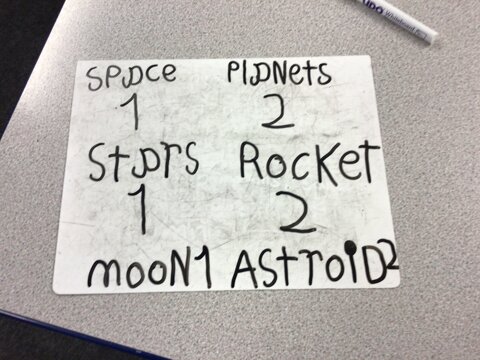 Space Planets
1 2
Stars Rocket
1 2
mooN1 AStroiD2